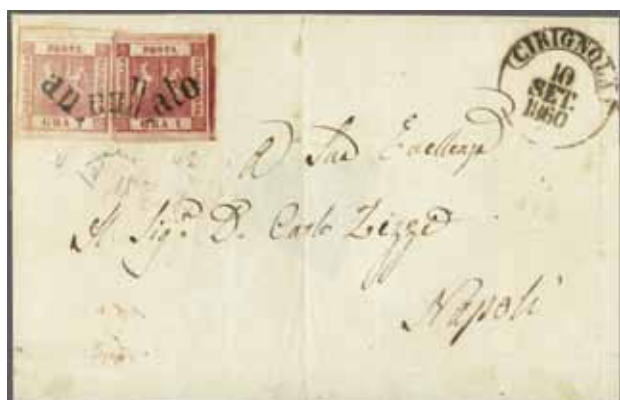 POSTA POSTA
annullato
GRA 1 GRA 1
CIRIGNOLA
10
SET.
1860
A Sua Eccellenza
Il Sigr. D. Carlo
Napoli